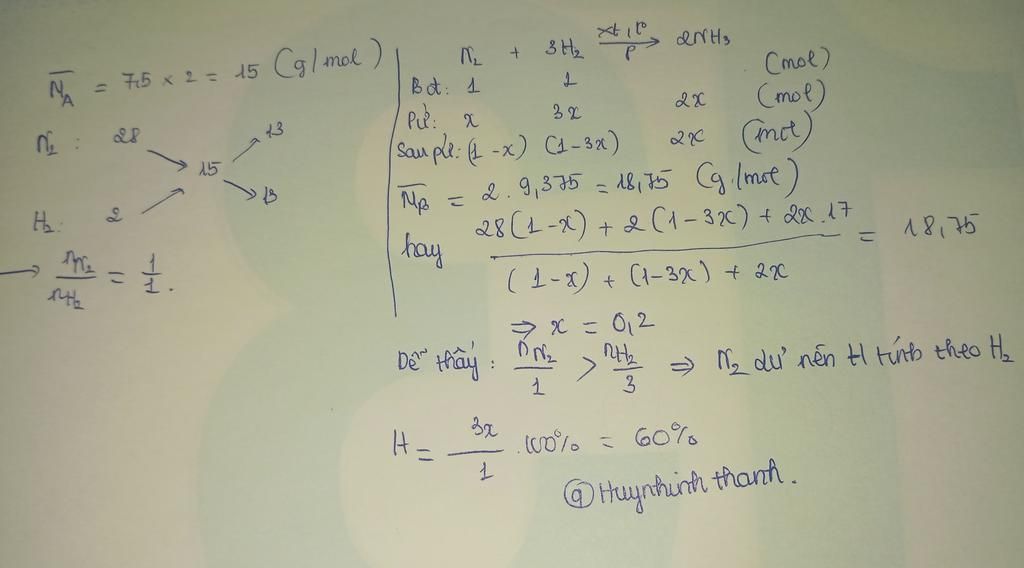 M̅_A = 7,5 × 2 = 15 (g/mol)
N₂ : 28
13
15
H₂: 2
13
→ n_N₂ / n_H₂ = 1/1.
N₂ + 3H₂ →(xt, t°, p) 2NH₃
Bđ: 1 1 (mol)
Pứ: x 3x 2x (mol)
Sau pứ: (1-x) (1-3x) 2x (mol)
M̅_B = 2 . 9,375 = 18,75 (g/mol)
hay (28(1-x) + 2(1-3x) + 2x.17) / ((1-x) + (1-3x) + 2x) = 18,75
⇒ x = 0,2
Dễ thấy: n_N₂/1 > n_H₂/3 ⇒ N₂ dư nên H tính theo H₂
H = 3x/1 . 100% = 60%
@Huynhinhthanh.